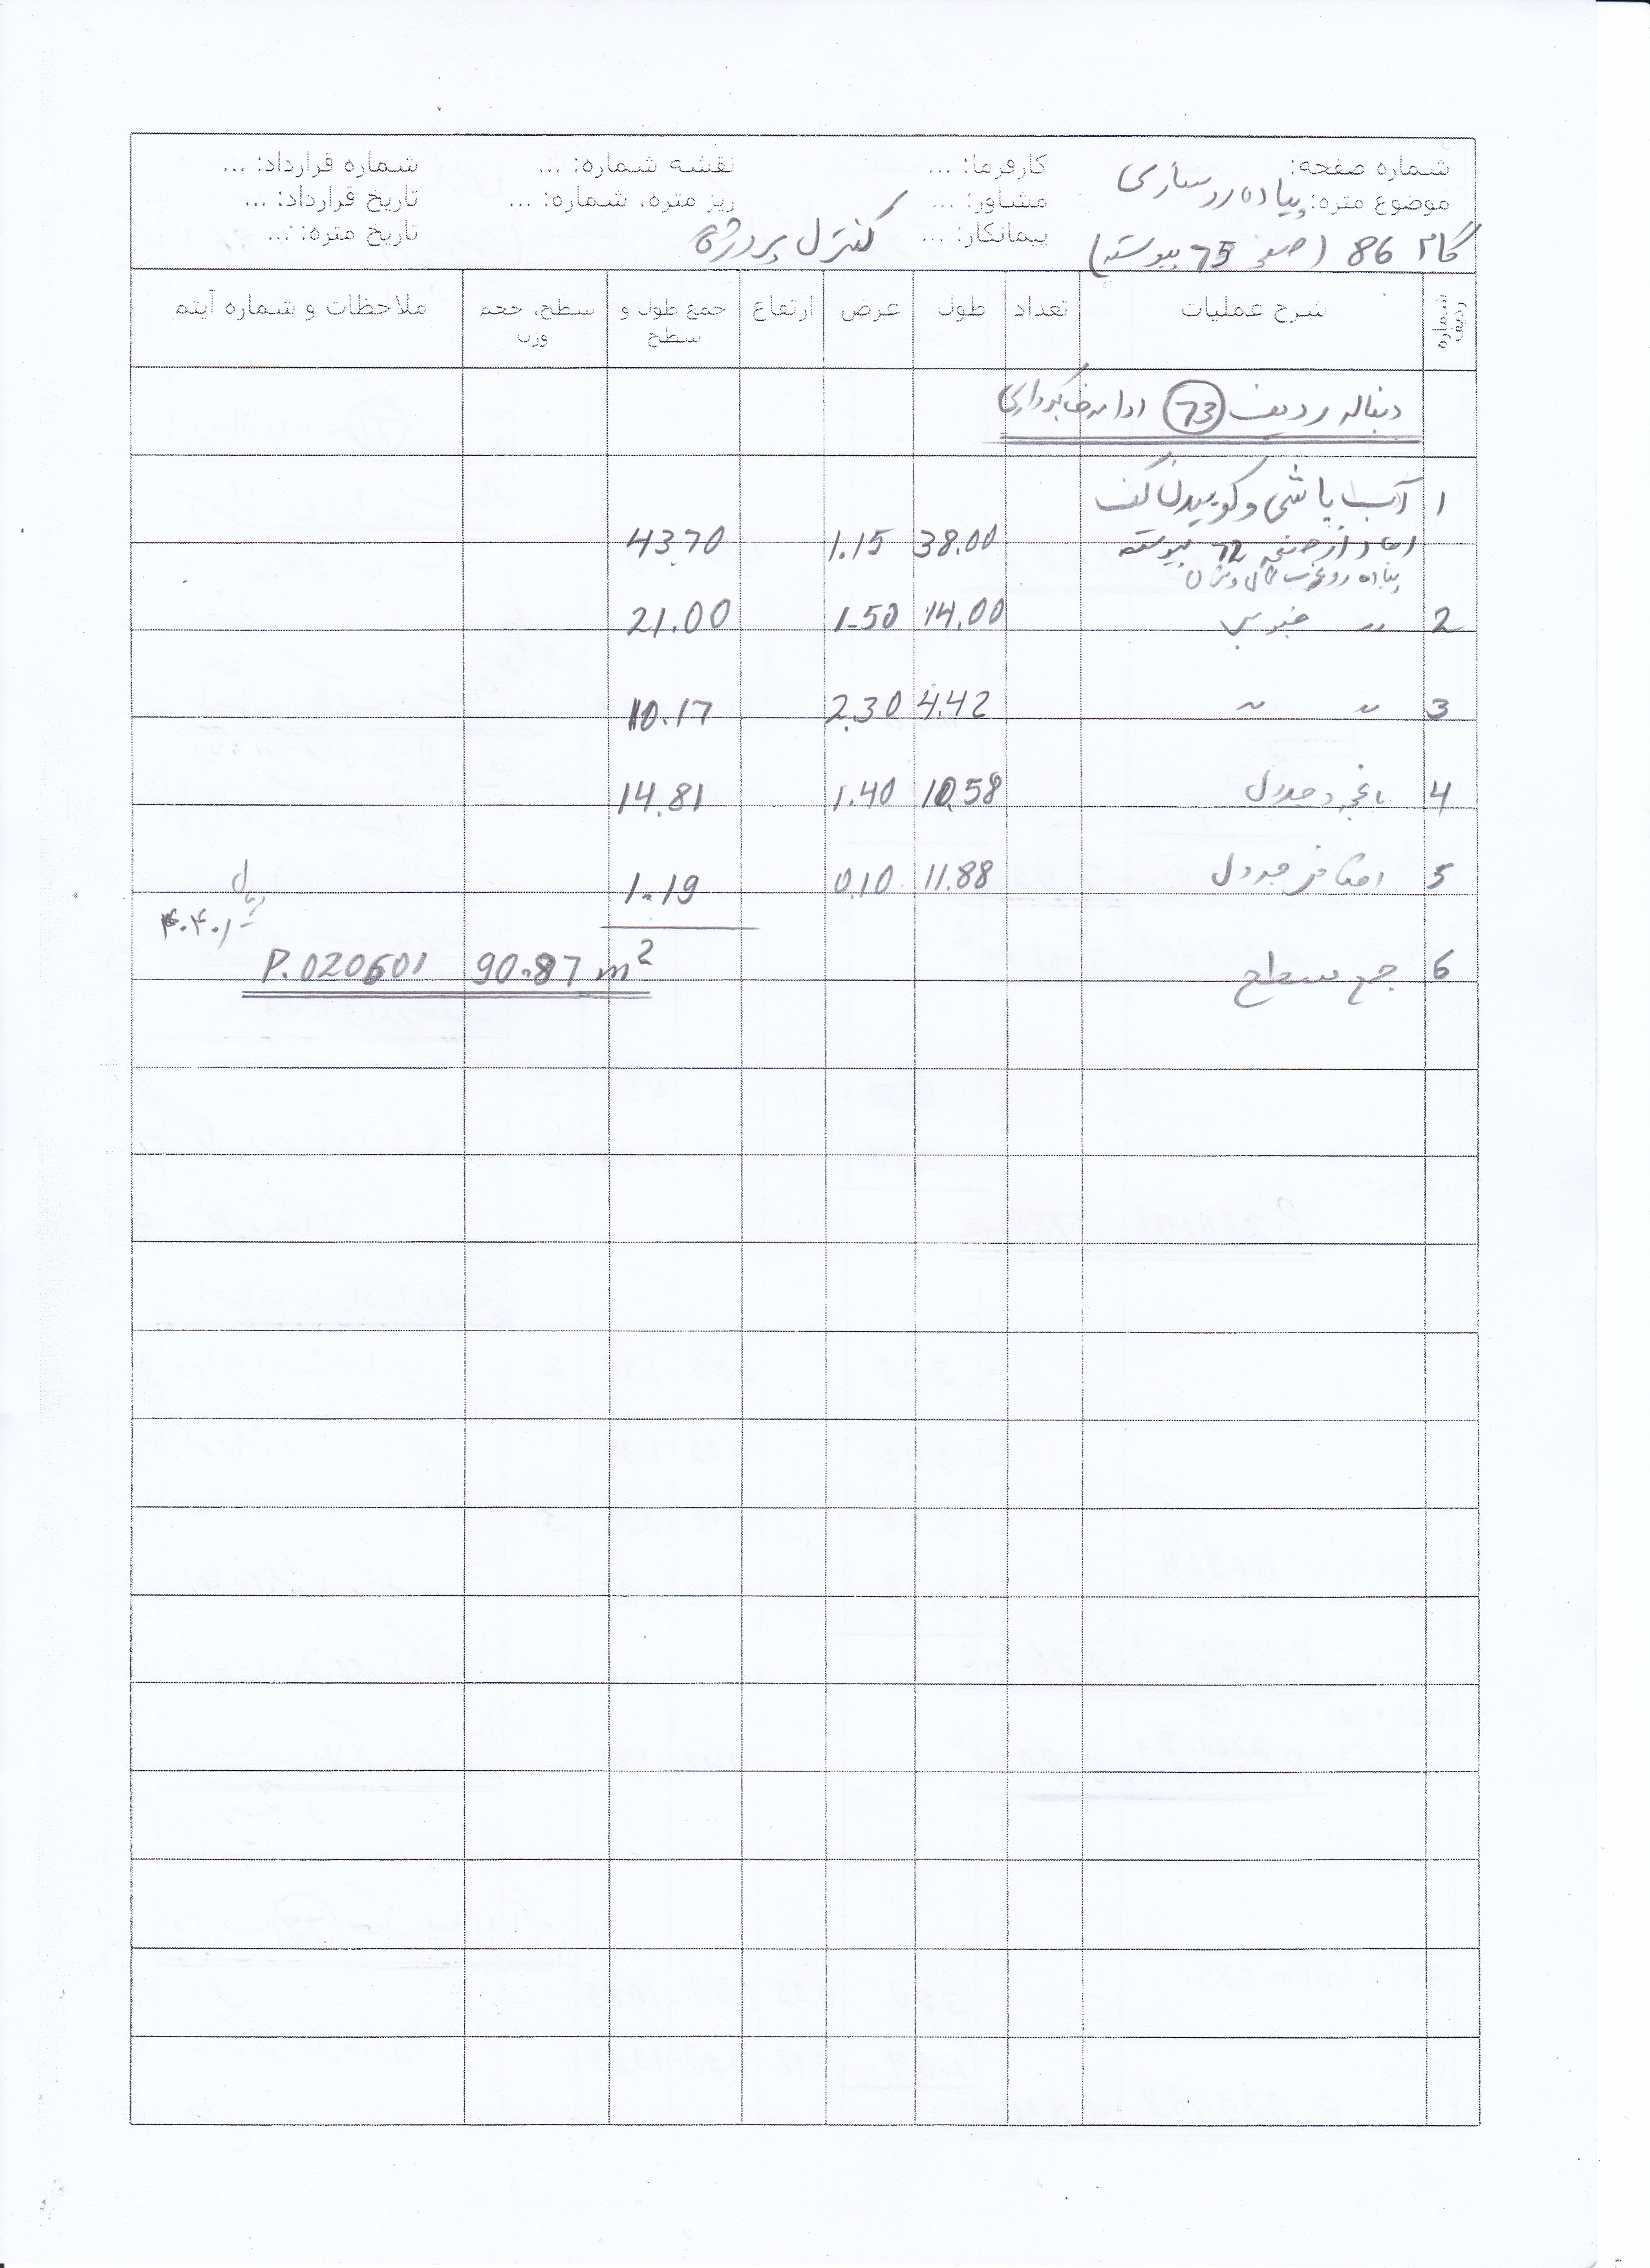 شماره صفحه:
کارفرما: ...
نقشه شماره: ...
شماره قرارداد: ...
موضوع متره: پیاده رو سازی
مشاور: ...
ریز متره، شماره: ...
تاریخ قرارداد: ...
گام 86 (صفحه 75 پیوسته)
پیمانکار: ...
کنترل پروژه
تاریخ متره: ...
شماره ردیف
شرح عملیات
تعداد
طول
عرض
ارتفاع
جمع طول و سطح
سطح، حجم وزن
ملاحظات و شماره آیتم
دنباله ردیف 73 ادامه خاکبرداری
1 آب پاشی و کوبیدن کف
ابعاد از صفحه 72 پیوسته 38.00 1.15 43.70
پیاده رو غرب
2 " جنوبی 14.00 1.50 21.00
3 " " 4.42 2.30 10.17
4 باغچه و جدول 10.58 1.40 14.81
5 جدول 11.88 0.10 1.19
ریال
6 جمع سطح 90.87 m² P.020601